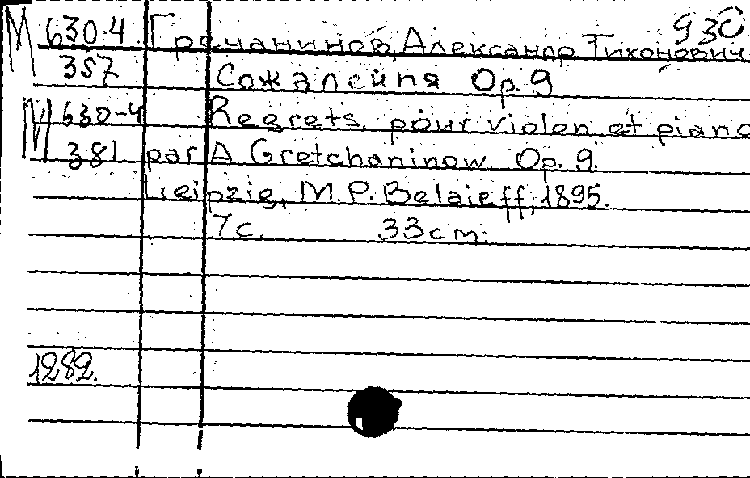 930
М 630-4 Гречанинов, Александр Тихонович
357 Сожаления Ор. 9
М 630-4 Regrets pour violon et piano
381 par A Gretchaninow Op. 9.
Leipzig, M. P. Belaieff, 1895.
7 с. 33 cm.
1282.